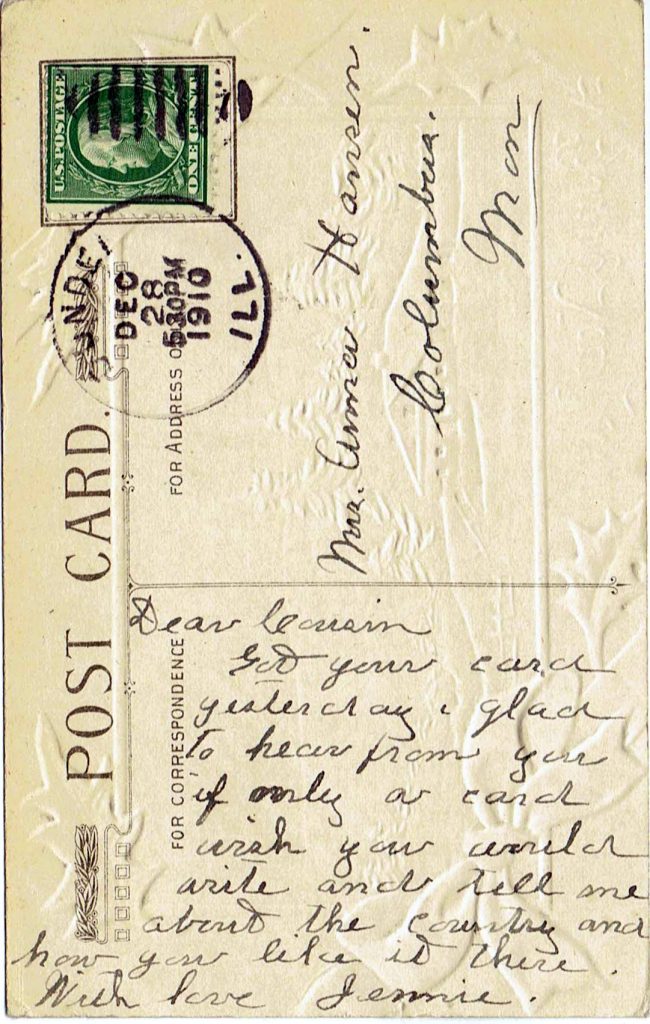 POST CARD.
U.S. POSTAGE
ONE CENT
DEC
28
5 30PM
1910
ILL.
FOR CORRESPONDENCE
FOR ADDRESS
Dear Cousin
Got your card
yesterday & glad
to hear from you
if only a card
wish you would
write and tell me
about the country and
how you like it there.
With love Jennie.
Mrs. Anna Hansen.
Columbus.
Mon